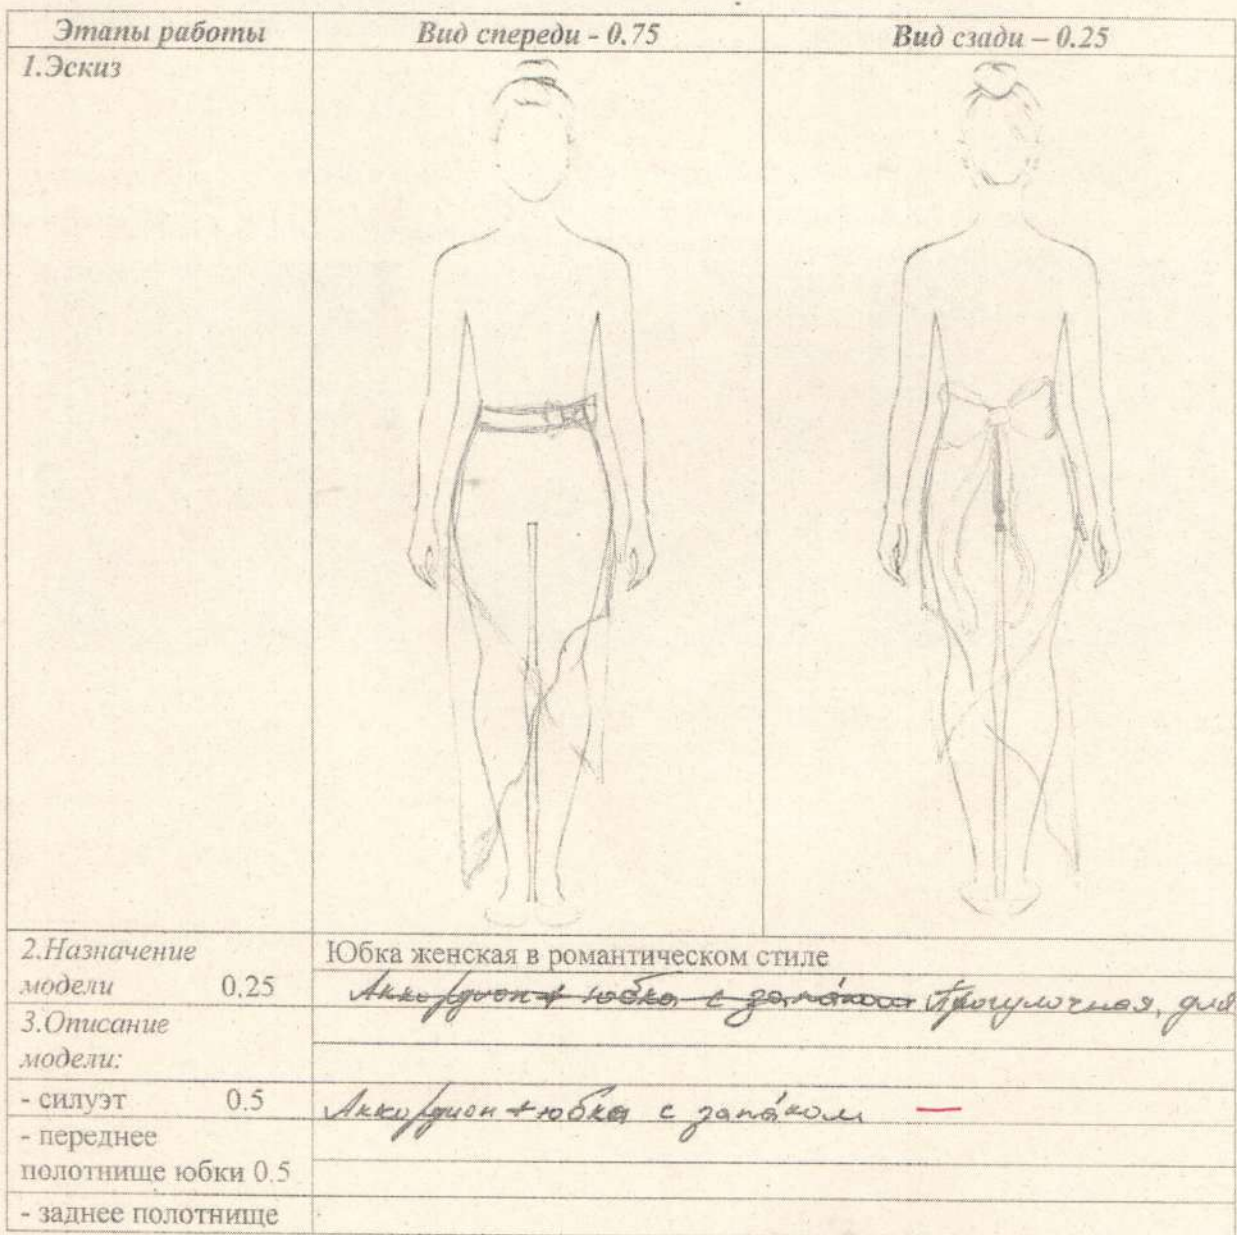 Этапы работы
Вид спереди - 0.75
Вид сзади – 0.25
1.Эскиз
2.Назначение
модели 0,25
Юбка женская в романтическом стиле
Аккордион + юбка с запа́хом Прогулочная, для
3.Описание
модели:
- силуэт 0.5
Аккордион + юбка с запа́хом —
- переднее
полотнище юбки 0.5
- заднее полотнище